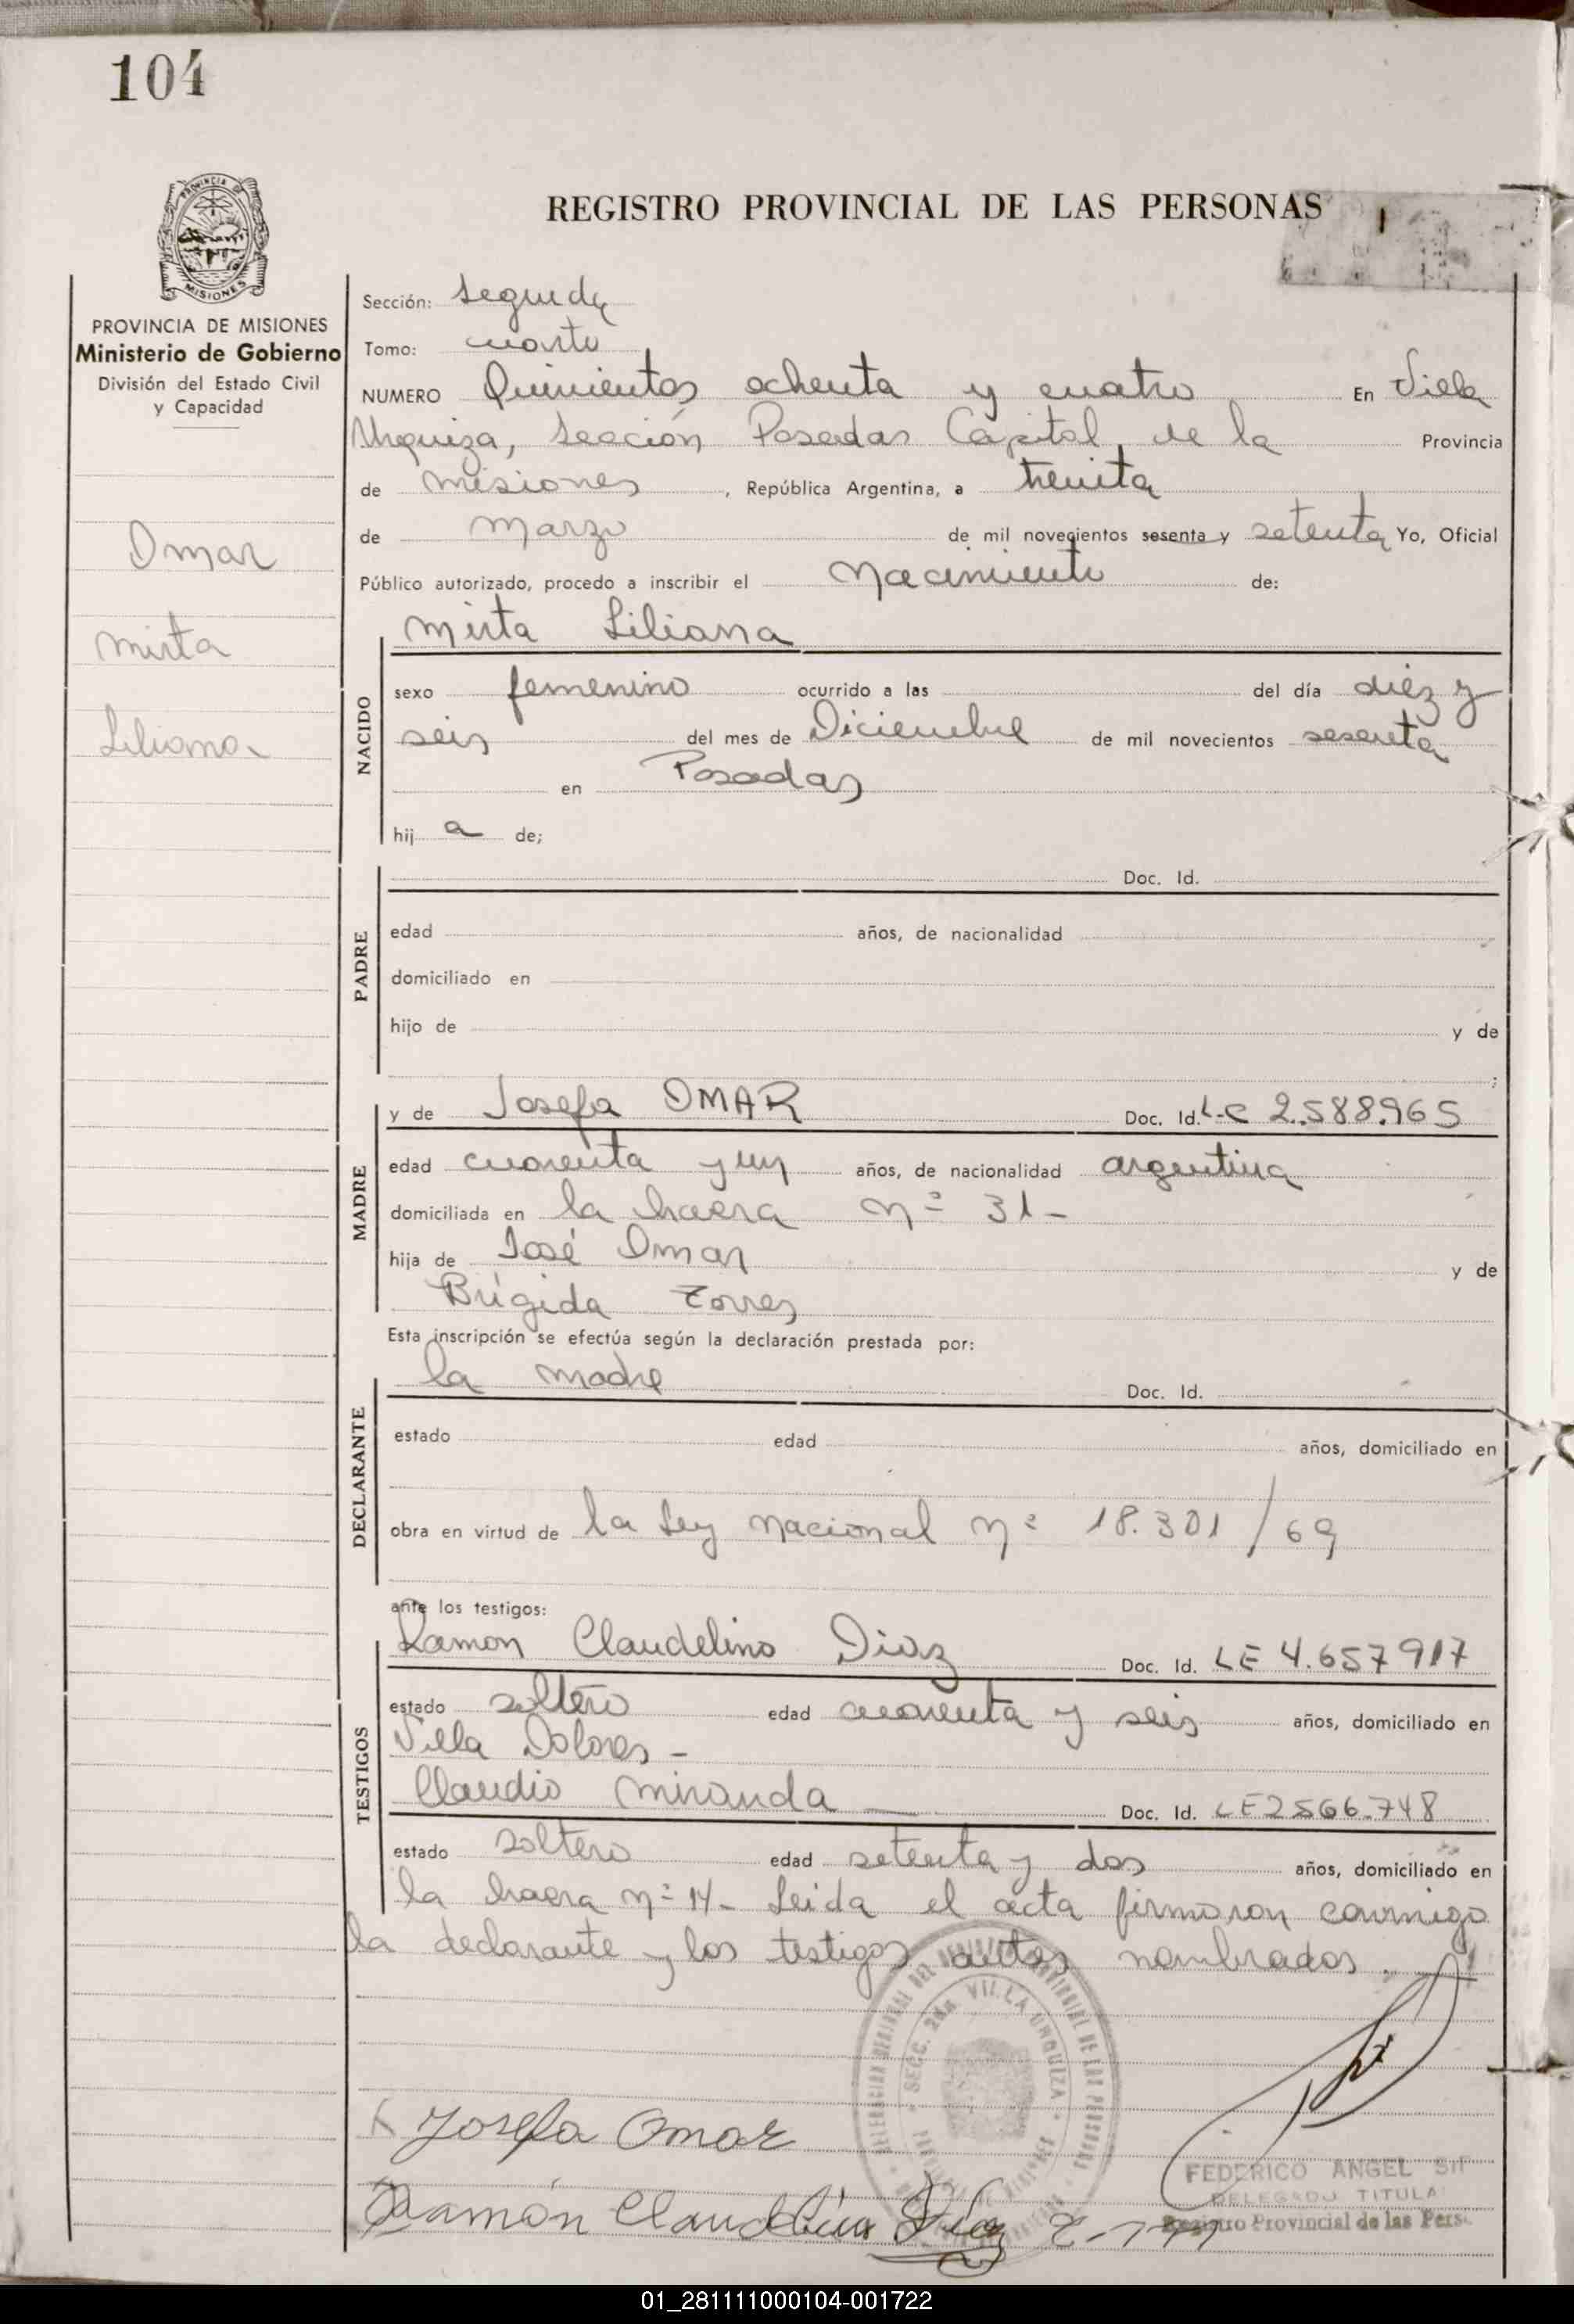 104
REGISTRO PROVINCIAL DE LAS PERSONAS
PROVINCIA DE
MISIONES
PROVINCIA DE MISIONES
Ministerio de Gobierno
División del Estado Civil
y Capacidad
Omar
Mirta
Liliana
Sección: segunda
Tomo: cuarto
NUMERO Quinientos ochenta y cuatro En Villa
Urquiza, Sección Posadas Capital, de la Provincia
de Misiones, República Argentina, a treinta
de Marzo de mil novecientos sesenta y setenta Yo, Oficial
Público autorizado, procedo a inscribir el Nacimiento de:
Mirta Liliana
NACIDO
sexo femenino ocurrido a las del día diez y
seis del mes de Diciembre de mil novecientos sesenta
en Posadas
hij a de;
Doc. Id.
PADRE
edad años, de nacionalidad
domiciliado en
hijo de y de
;
y de Josefa OMAR Doc. Id. L.C 2.588.965
MADRE
edad cuarenta y un años, de nacionalidad argentina
domiciliada en la Nº 31-
hija de José Omar y de
Brígida Torres
Esta inscripción se efectúa según la declaración prestada por:
la madre Doc. Id.
DECLARANTE
estado edad años, domiciliado en
obra en virtud de la Ley Nacional Nº 18.301/69
ante los testigos:
Ramon Claudelino Diaz Doc. Id. LE 4.657917
TESTIGOS
estado soltero edad cuarenta y seis años, domiciliado en
Villa Dolores -
Claudio Miranda Doc. Id. LE 2566.748
estado soltero edad setenta y dos años, domiciliado en
la Nº 14- Leida el acta firmaron conmigo
la declarante y los testigos antes nombrados.
SECC. 2da VILLA URQUIZA
Josefa Omar
FEDERICO ANGEL
DELEGADO TITULA
Registro Provincial de las Pers
Ramón Claudelino Díaz
01_281111000104-001722